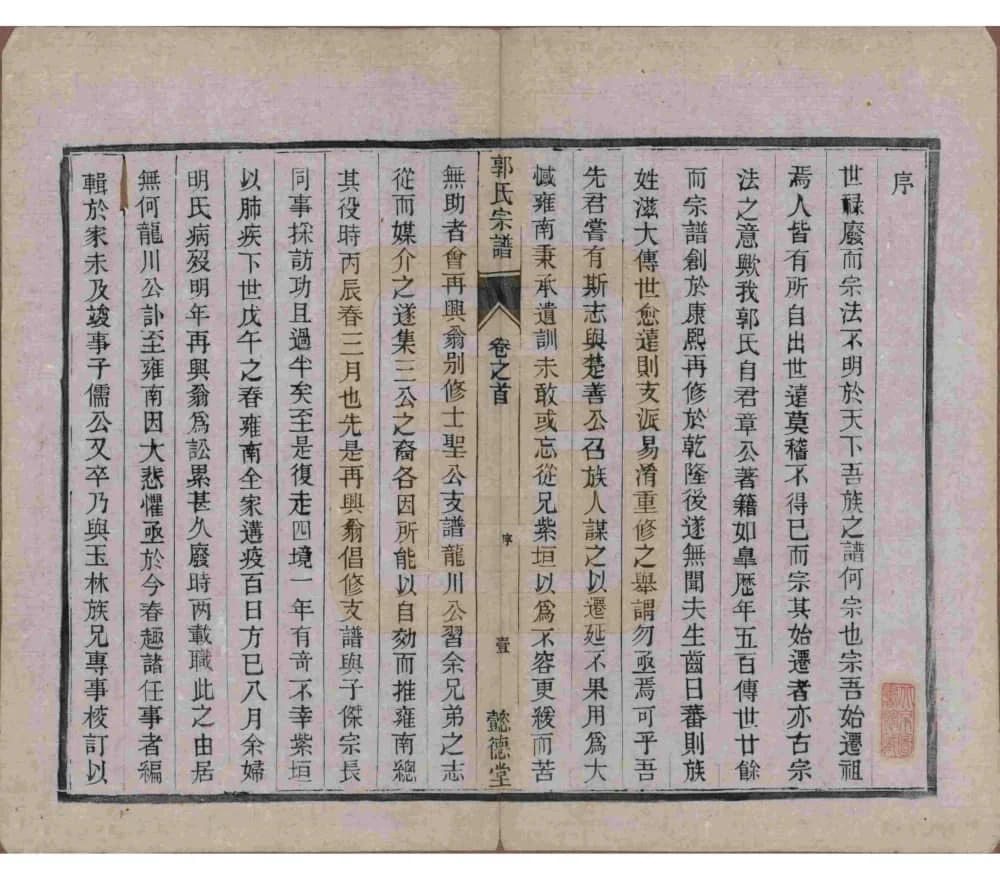 序
世祿廢而宗法不明於天下吾族之譜何宗也宗吾始遷祖
焉人皆有所自出世遠莫稽不得已而宗其始遷者亦古宗
法之意歟我郭氏自君章公著籍如臯歷年五百傳世廿餘
而宗譜創於康熙再修於乾隆後遂無聞夫生齒日蕃則族
姓滋大傳世愈遠則支派易淆重修之舉謂勿亟焉可乎吾
先君嘗有斯志與楚善公召族人謀之以遷延不果用為大
憾雍南秉承遺訓未敢或忘從兄紫垣以為不容更緩而苦
郭氏宗譜
卷之首
序
壹
懿德堂
無助者會再興翁別修士聖公支譜龍川公習余兄弟之志
從而媒介之遂集三公之裔各因所能以自効而推雍南總
其役時丙辰春三月也先是再興翁倡修支譜與子傑宗長
同事採訪功且過半矣至是復走四境一年有奇不幸紫垣
以肺疾下世戊午之春雍南全家遘疫百日方已八月余婦
明氏病歿明年再興翁為訟累甚久廢時两載職此之由居
無何龍川公訃至雍南因大悲懼亟於今春趣諸任事者編
輯於家未及竣事子儒公又卒乃與玉林族兄專事校訂以